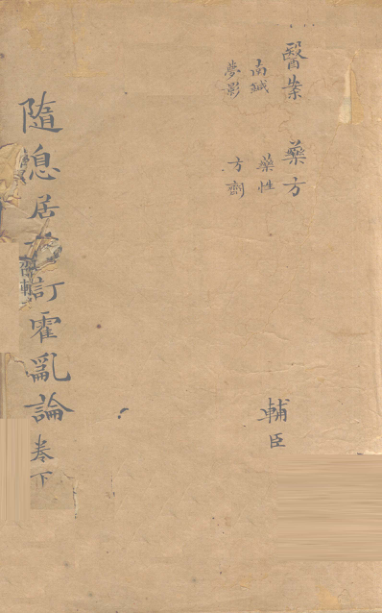 醫案 藥方
南鍼 藥性
夢影 方劑
輔臣
隨息居訂霍亂論 卷下